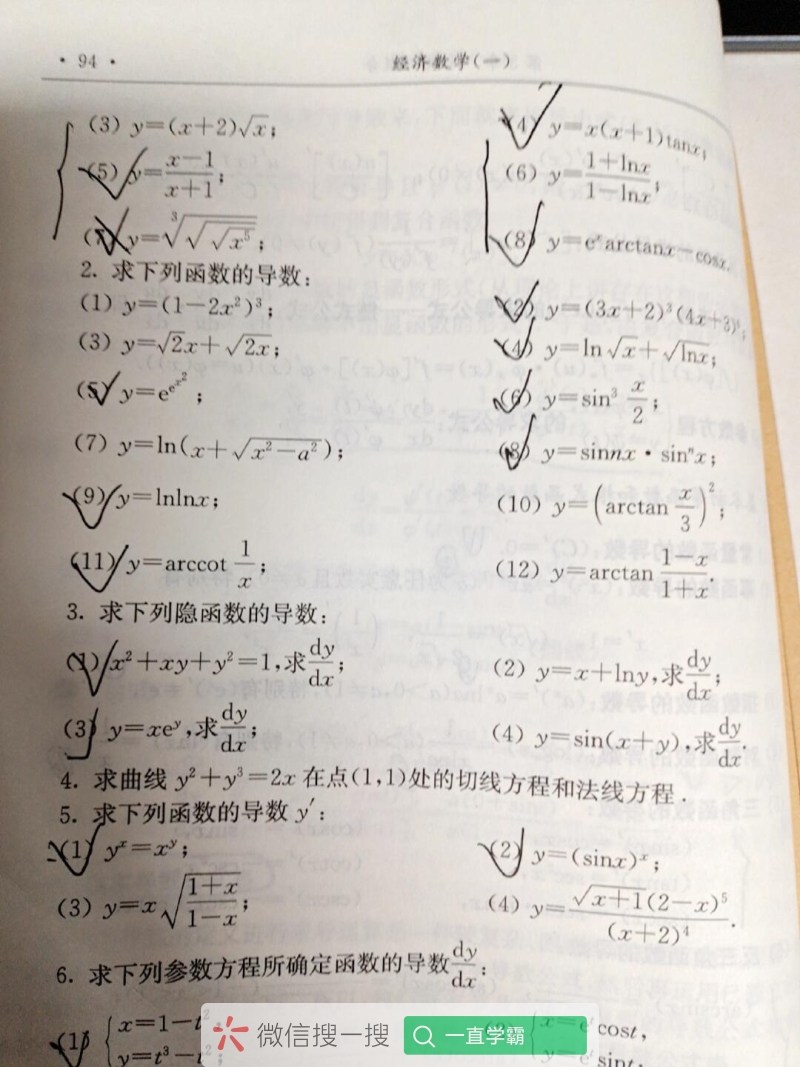 · 94 ·
经济数学(一)
(3) y=(x+2)√x;
(4) y=x(x+1)tanx;
(5) y=(x-1)/(x+1);
(6) y=(1+lnx)/(1-lnx);
(7) y=∛√√x⁵;
(8) y=eˣarctanx-cosx.
2. 求下列函数的导数:
(1) y=(1-2x²)³;
(2) y=(3x+2)³(4x+3)
(3) y=√2x+√2x;
(4) y=ln√x+√lnx;
(5) y=e^(e^(x²));
(6) y=sin³ x/2;
(7) y=ln(x+√(x²-a²));
(8) y=sinnx·sinⁿx;
(9) y=lnlnx;
(10) y=(arctan x/3)²;
(11) y=arccot 1/x;
(12) y=arctan (1-x)/(1+x).
3. 求下列隐函数的导数:
(1) x²+xy+y²=1,求dy/dx;
(2) y=x+lny,求dy/dx;
(3) y=xeʸ,求dy/dx;
(4) y=sin(x+y),求dy/dx.
4. 求曲线 y²+y³=2x 在点(1,1)处的切线方程和法线方程.
5. 求下列函数的导数 y′:
(1) yˣ=xʸ;
(2) y=(sinx)ˣ;
(3) y=x√((1+x)/(1-x));
(4) y=√x+1(2-x)⁵/(x+2)⁴.
6. 求下列参数方程所确定函数的导数dy/dx:
(1) {x=1-t²,
y=t³-t
x=eᵗcost,
y=eᵗsint.
微信搜一搜
一直学霸